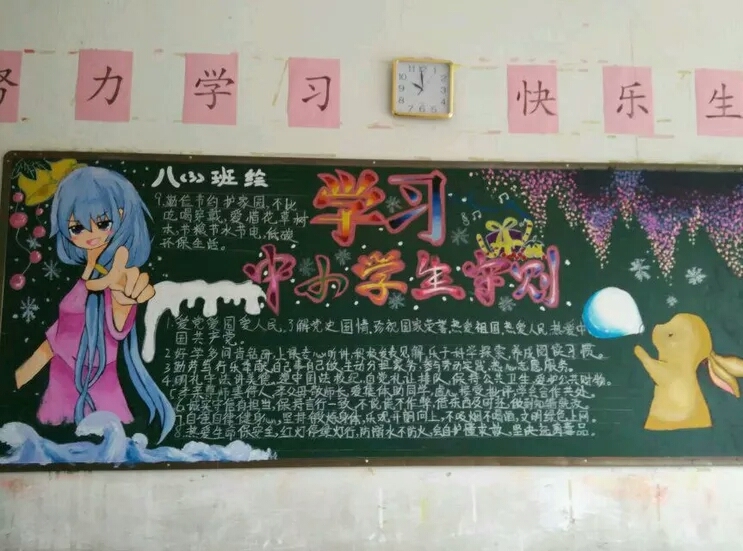 努力学习 快乐生
12 11 10 9 8 7 6 5 4 3 2 1
八(3)班绘
学习
中小学生守则
9.勤俭节约护家园,不比
吃喝穿戴,爱惜花草树
木,节粮节水节电,低碳
环保生活。
1.爱党爱国爱人民,了解党史国情,珍视国家荣誉,热爱祖国,热爱人民,热爱中
国共产党。
2.好学多问肯钻研,上课专心听讲,积极发表见解,乐于科学探索,养成阅读习惯。
3.勤劳笃行乐奉献,自己事自己做,主动分担家务,参与劳动实践,热心志愿服务。
4.明礼守法讲美德,遵守国法校纪,自觉礼让排队,保持公共卫生,爱护公共财物。
5.孝亲尊师善待人,
6.诚实守信有担当,保持言行一致,不说谎不作弊,借东西及时还,
7.自强自律健身心,坚持锻炼身体,乐观开朗向上,不吸烟不喝酒,文明绿色上网。
8.珍爱生命保安全,红灯停绿灯行,防溺水不玩火,会自护懂求救,坚决远离毒品。